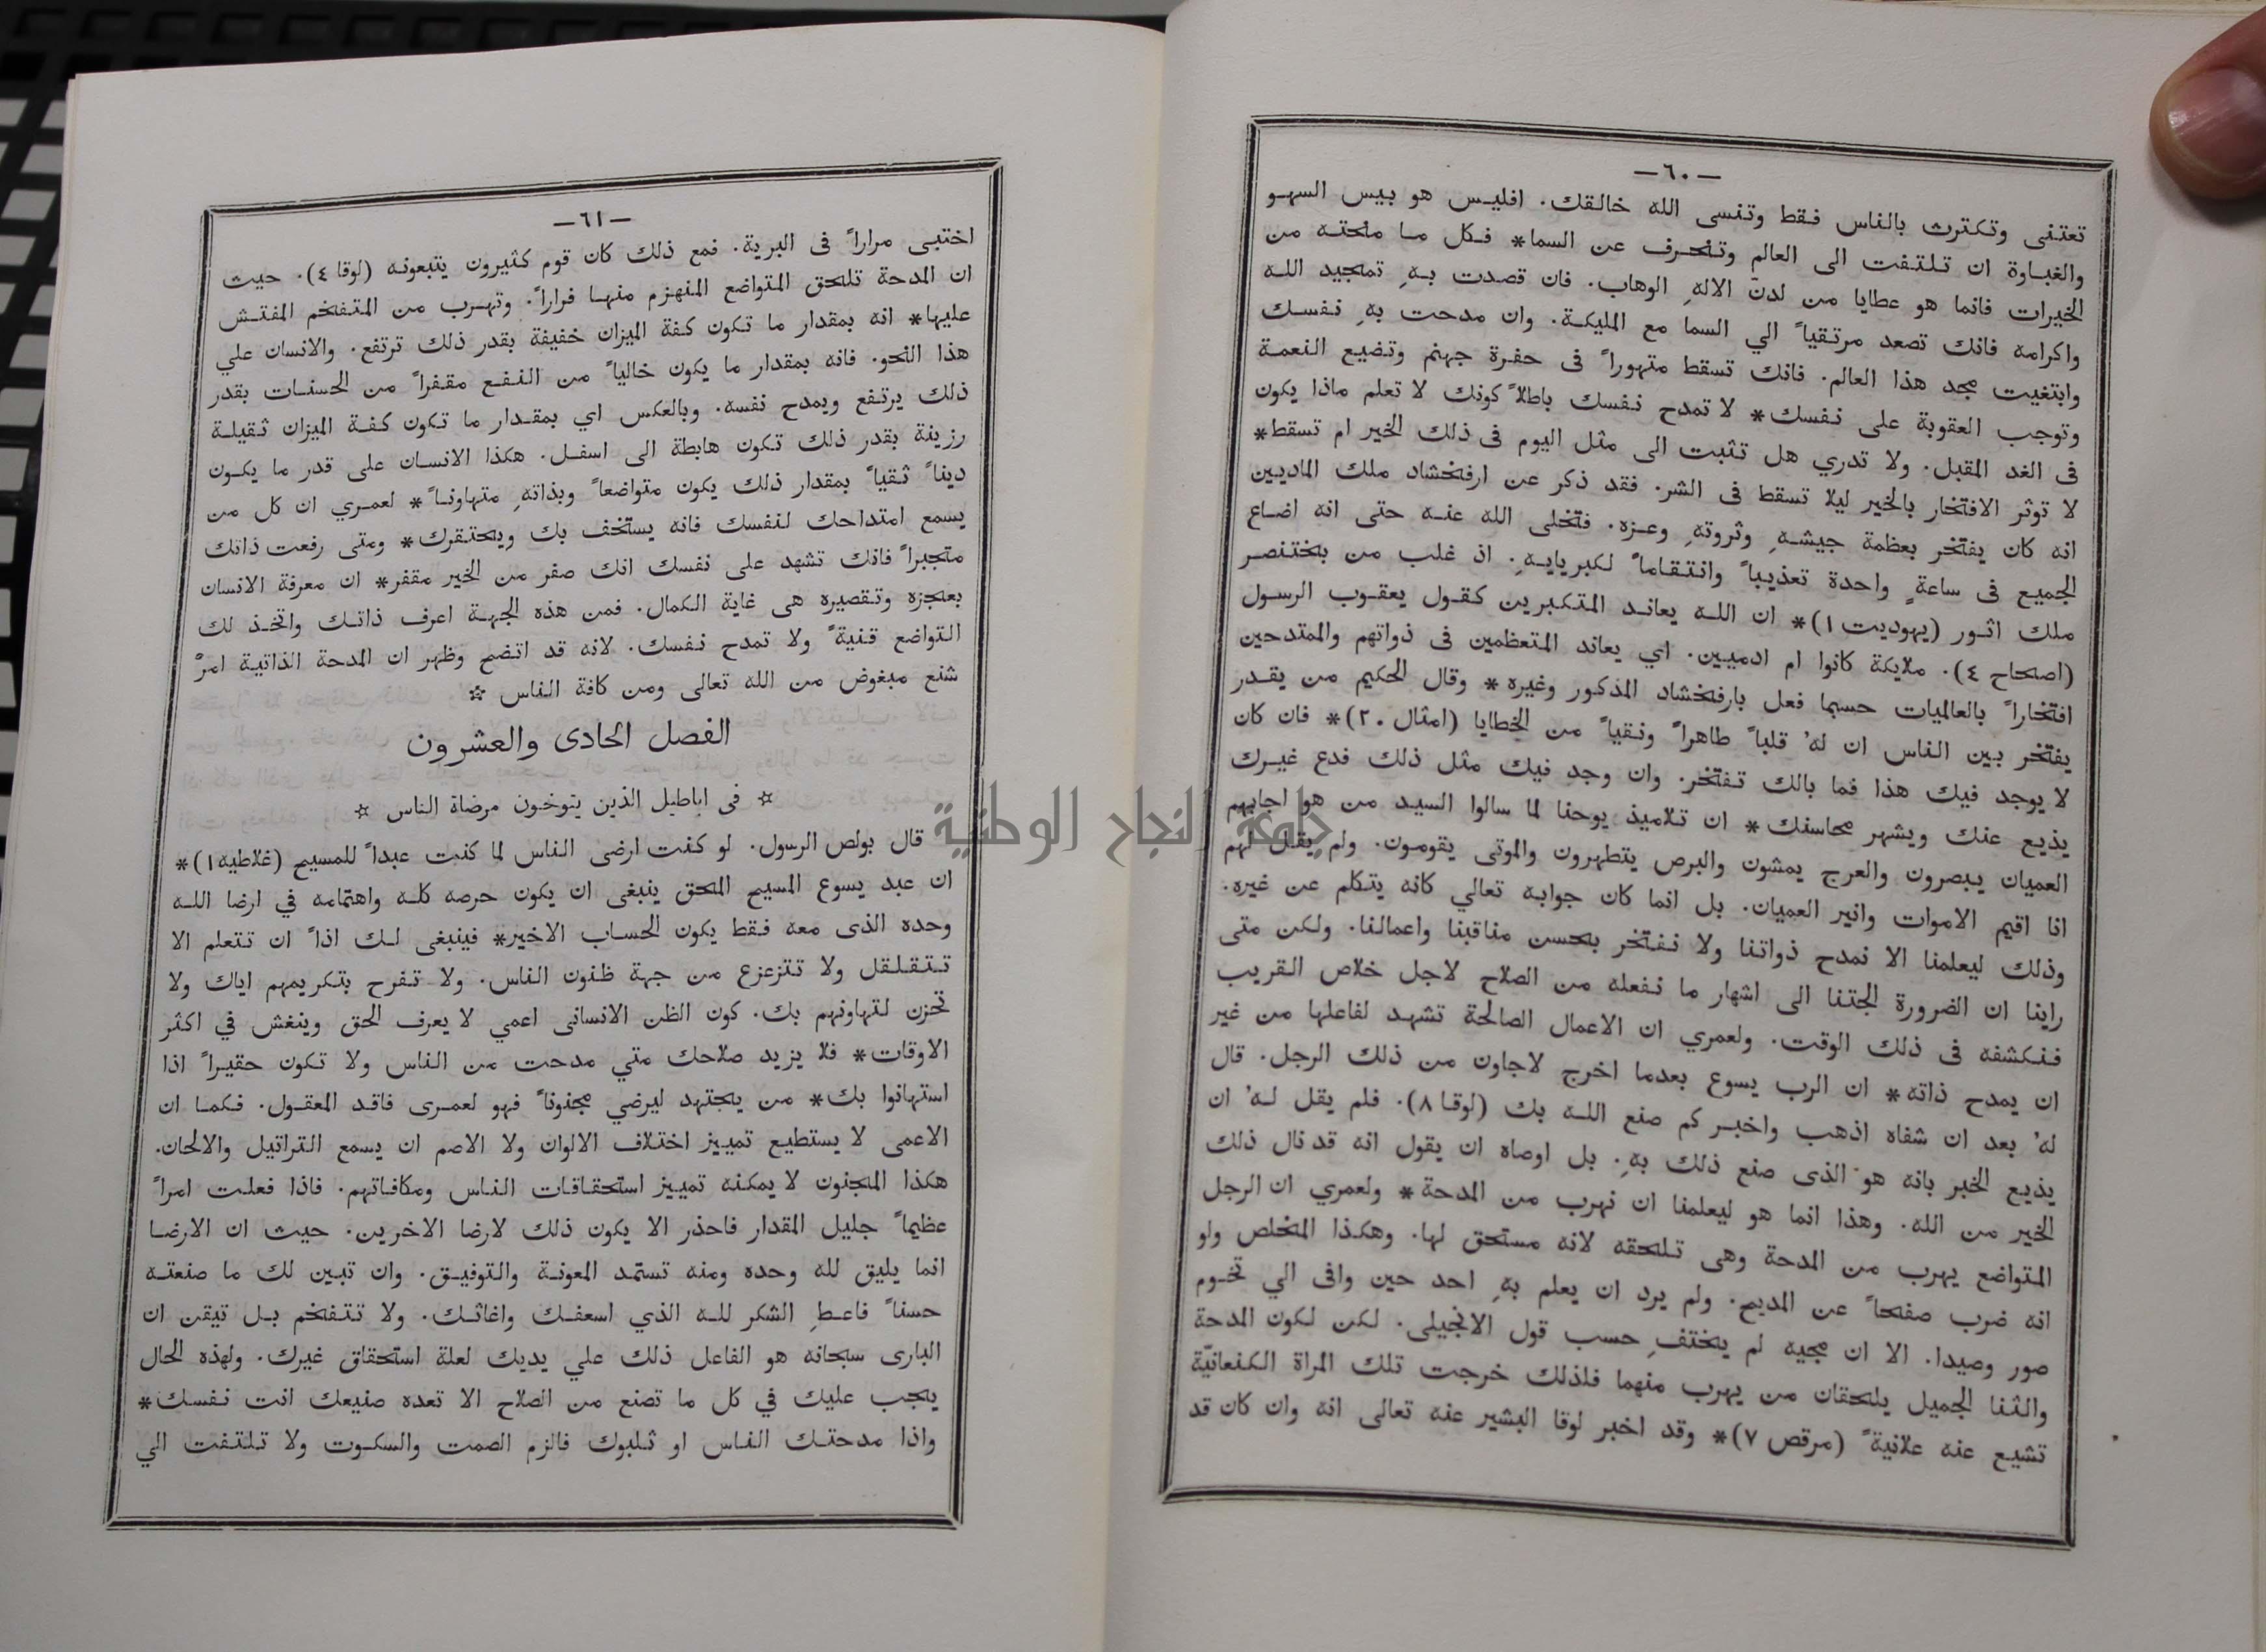 — ٦٠ —
تعتنى وتكترث بالناس فقط وتنسى الله خالقك. افليس هو بيس السهو
والغباوة ان تلتفت الى العالم وتنحرف عن السما* فكل ما منحته من
الخيرات فانما هو عطايا من لدن الالهِ الوهاب. فان قصدت بهِ تمجيد الله
واكرامه فانك تصعد مرتقياً الي السما مع المليكة. وان مدحت بهِ نفسك
وابتغيت مجد هذا العالم. فانك تسقط متهوراً فى حفرة جهنم وتضيع النعمة
وتوجب العقوبة على نفسك* لا تمدح نفسك باطلاً كونك لا تعلم ماذا يكون
فى الغد المقبل. ولا تدري هل تثبت الى مثل اليوم فى ذلك الخير ام تسقط*
لا توثر الافتخار بالخير ليلا تسقط فى الشر. فقد ذكر عن ارفخشاد ملك الماديين
انه كان يفتخر بعظمة جيشهِ وثروتهِ وعزه. فتخلى الله عنه حتى انه اضاع
الجميع فى ساعةٍ واحدة تعذيباً وانتقاماً لكبريايهِ. اذ غلب من بختنصر
ملك اثور (يهوديت ١)* ان الله يعاند المتكبرين كقول يعقوب الرسول
(اصحاح ٤). ملايكة كانوا ام ادميين. اي يعاند المتعظمين فى ذواتهم والممتدحين
افتخاراً بالعالميات حسبما فعل بارفخشاد المذكور وغيره* وقال الحكيم من يقدر
يفتخر بين الناس ان لهُ قلباً طاهراً ونقياً من الخطايا (امثال ٢٠)* فان كان
لا يوجد فيك هذا فما بالك تفتخر. وان وجد فيك مثل ذلك فدع غيرك
يذيع عنك ويشهر محاسنك* ان تلاميذ يوحنا لما سالوا السيد من هو اجابهم
العميان يبصرون والعرج يمشون والبرص يتطهرون والموتى يقومون. ولم يقل لهم
انا اقيم الاموات وانير العميان. بل انما كان جوابه تعالي كانه يتكلم عن غيره.
وذلك ليعلمنا الا نمدح ذواتنا ولا نفتخر بحسن مناقبنا واعمالنا. ولكن متى
راينا ان الضرورة الجتنا الى اشهار ما نفعله من الصلاح لاجل خلاص القريب
فنكشفه فى ذلك الوقت. ولعمري ان الاعمال الصالحة تشهد لفاعلها من غير
ان يمدح ذاته* ان الرب يسوع بعدما اخرج لاجاون من ذلك الرجل. قال
لهُ بعد ان شفاه اذهب واخبر كم صنع الله بك (لوقا ٨). فلم يقل لهُ ان
يذيع الخبر بانه هو الذى صنع ذلك بهِ. بل اوصاه ان يقول انه قد نال ذلك
الخير من الله. وهذا انما هو ليعلمنا ان نهرب من المدحة* ولعمري ان الرجل
المتواضع يهرب من المدحة وهى تلحقه لانه مستحق لها. وهكذا المخلص ولو
انه ضرب صفحاً عن المديح. ولم يرد ان يعلم بهِ احد حين وافى الي تخوم
صور وصيدا. الا ان مجيه لم يختفِ حسب قول الانجيلى. لكن لكون المدحة
والثنا الجميل يلحقان من يهرب منهما فلذلك خرجت تلك المراة الكنعانيّة
تشيع عنه علانيةً (مرقص ٧)* وقد اخبر لوقا البشير عنه تعالى انه وان كان قد
— ٦١ —
اختبى مراراً فى البرية. فمع ذلك كان قوم كثيرون يتبعونه (لوقا ٤). حيث
ان المدحة تلحق المتواضع المنهزم منها فراراً. وتهرب من المتفخم المفتش
عليها* انه بمقدار ما تكون كفة الميزان خفيفة بقدر ذلك ترتفع. والانسان علي
هذا النحو. فانه بمقدار ما يكون خالياً من النفع مقفراً من الحسنات بقدر
ذلك يرتفع ويمدح نفسه. وبالعكس اي بمقدار ما تكون كفة الميزان ثقيلة
رزينة بقدر ذلك تكون هابطة الى اسفل. هكذا الانسان على قدر ما يكون
ديناً ثقياً بمقدار ذلك يكون متواضعاً وبذاتهِ متهاوناً* لعمري ان كل من
يسمع امتداحك لنفسك فانه يستخف بك ويحتقرك* ومتى رفعت ذاتك
متجبراً فانك تشهد على نفسك انك صفر من الخير مقفر* ان معرفة الانسان
بعجزه وتقصيره هى غاية الكمال. فمن هذه الجهة اعرف ذاتك واتخذ لك
التواضع قنيةً ولا تمدح نفسك. لانه قد اتضح وظهر ان المدحة الذاتية امرٌ
شنع مبغوض من الله تعالى ومن كافة الناس ☆
الفصل الحادى والعشرون
☆ فى اباطيل الذين يتوخون مرضاة الناس ☆
قال بولص الرسول. لو كنت ارضى الناس لما كنت عبداً للمسيح (غلاطيه ١)*
ان عبد يسوع المسيح المحق ينبغى ان يكون حرصه كله واهتمامه في ارضا الله
وحده الذى معه فقط يكون الحساب الاخير* فينبغى لك اذاً ان تتعلم الا
تتقلقل ولا تتزعزع من جهة ظنون الناس. ولا تفرح بتكريمهم اياك ولا
تحزن لتهاونهم بك. كون الظن الانسانى اعمي لا يعرف الحق وينغش في اكثر
الاوقات* فلا يزيد صلاحك متي مدحت من الناس ولا تكون حقيراً اذا
استهانوا بك* من يجتهد ليرضي مجنوناً فهو لعمرى فاقد المعقول. فكما ان
الاعمى لا يستطيع تمييز اختلاف الالوان ولا الاصم ان يسمع التراتيل والالحان.
هكذا المجنون لا يمكنه تمييز استحقاقات الناس ومكافاتهم. فاذا فعلت امراً
عظيماً جليل المقدار فاحذر الا يكون ذلك لارضا الاخرين. حيث ان الارضا
انما يليق لله وحده ومنه تستمد المعونة والتوفيق. وان تبين لك ما صنعته
حسناً فاعطِ الشكر لله الذي اسعفك واغاثك. ولا تتفخم بل تيقن ان
البارى سبحانه هو الفاعل ذلك علي يديك لعلة استحقاق غيرك. ولهذه الحال
يجب عليك في كل ما تصنع من الصلاح الا تعده صنيعك انت نفسك*
واذا مدحتك الناس او ثلبوك فالزم الصمت والسكوت ولا تلتفت الي
جامعة النجاح الوطنية